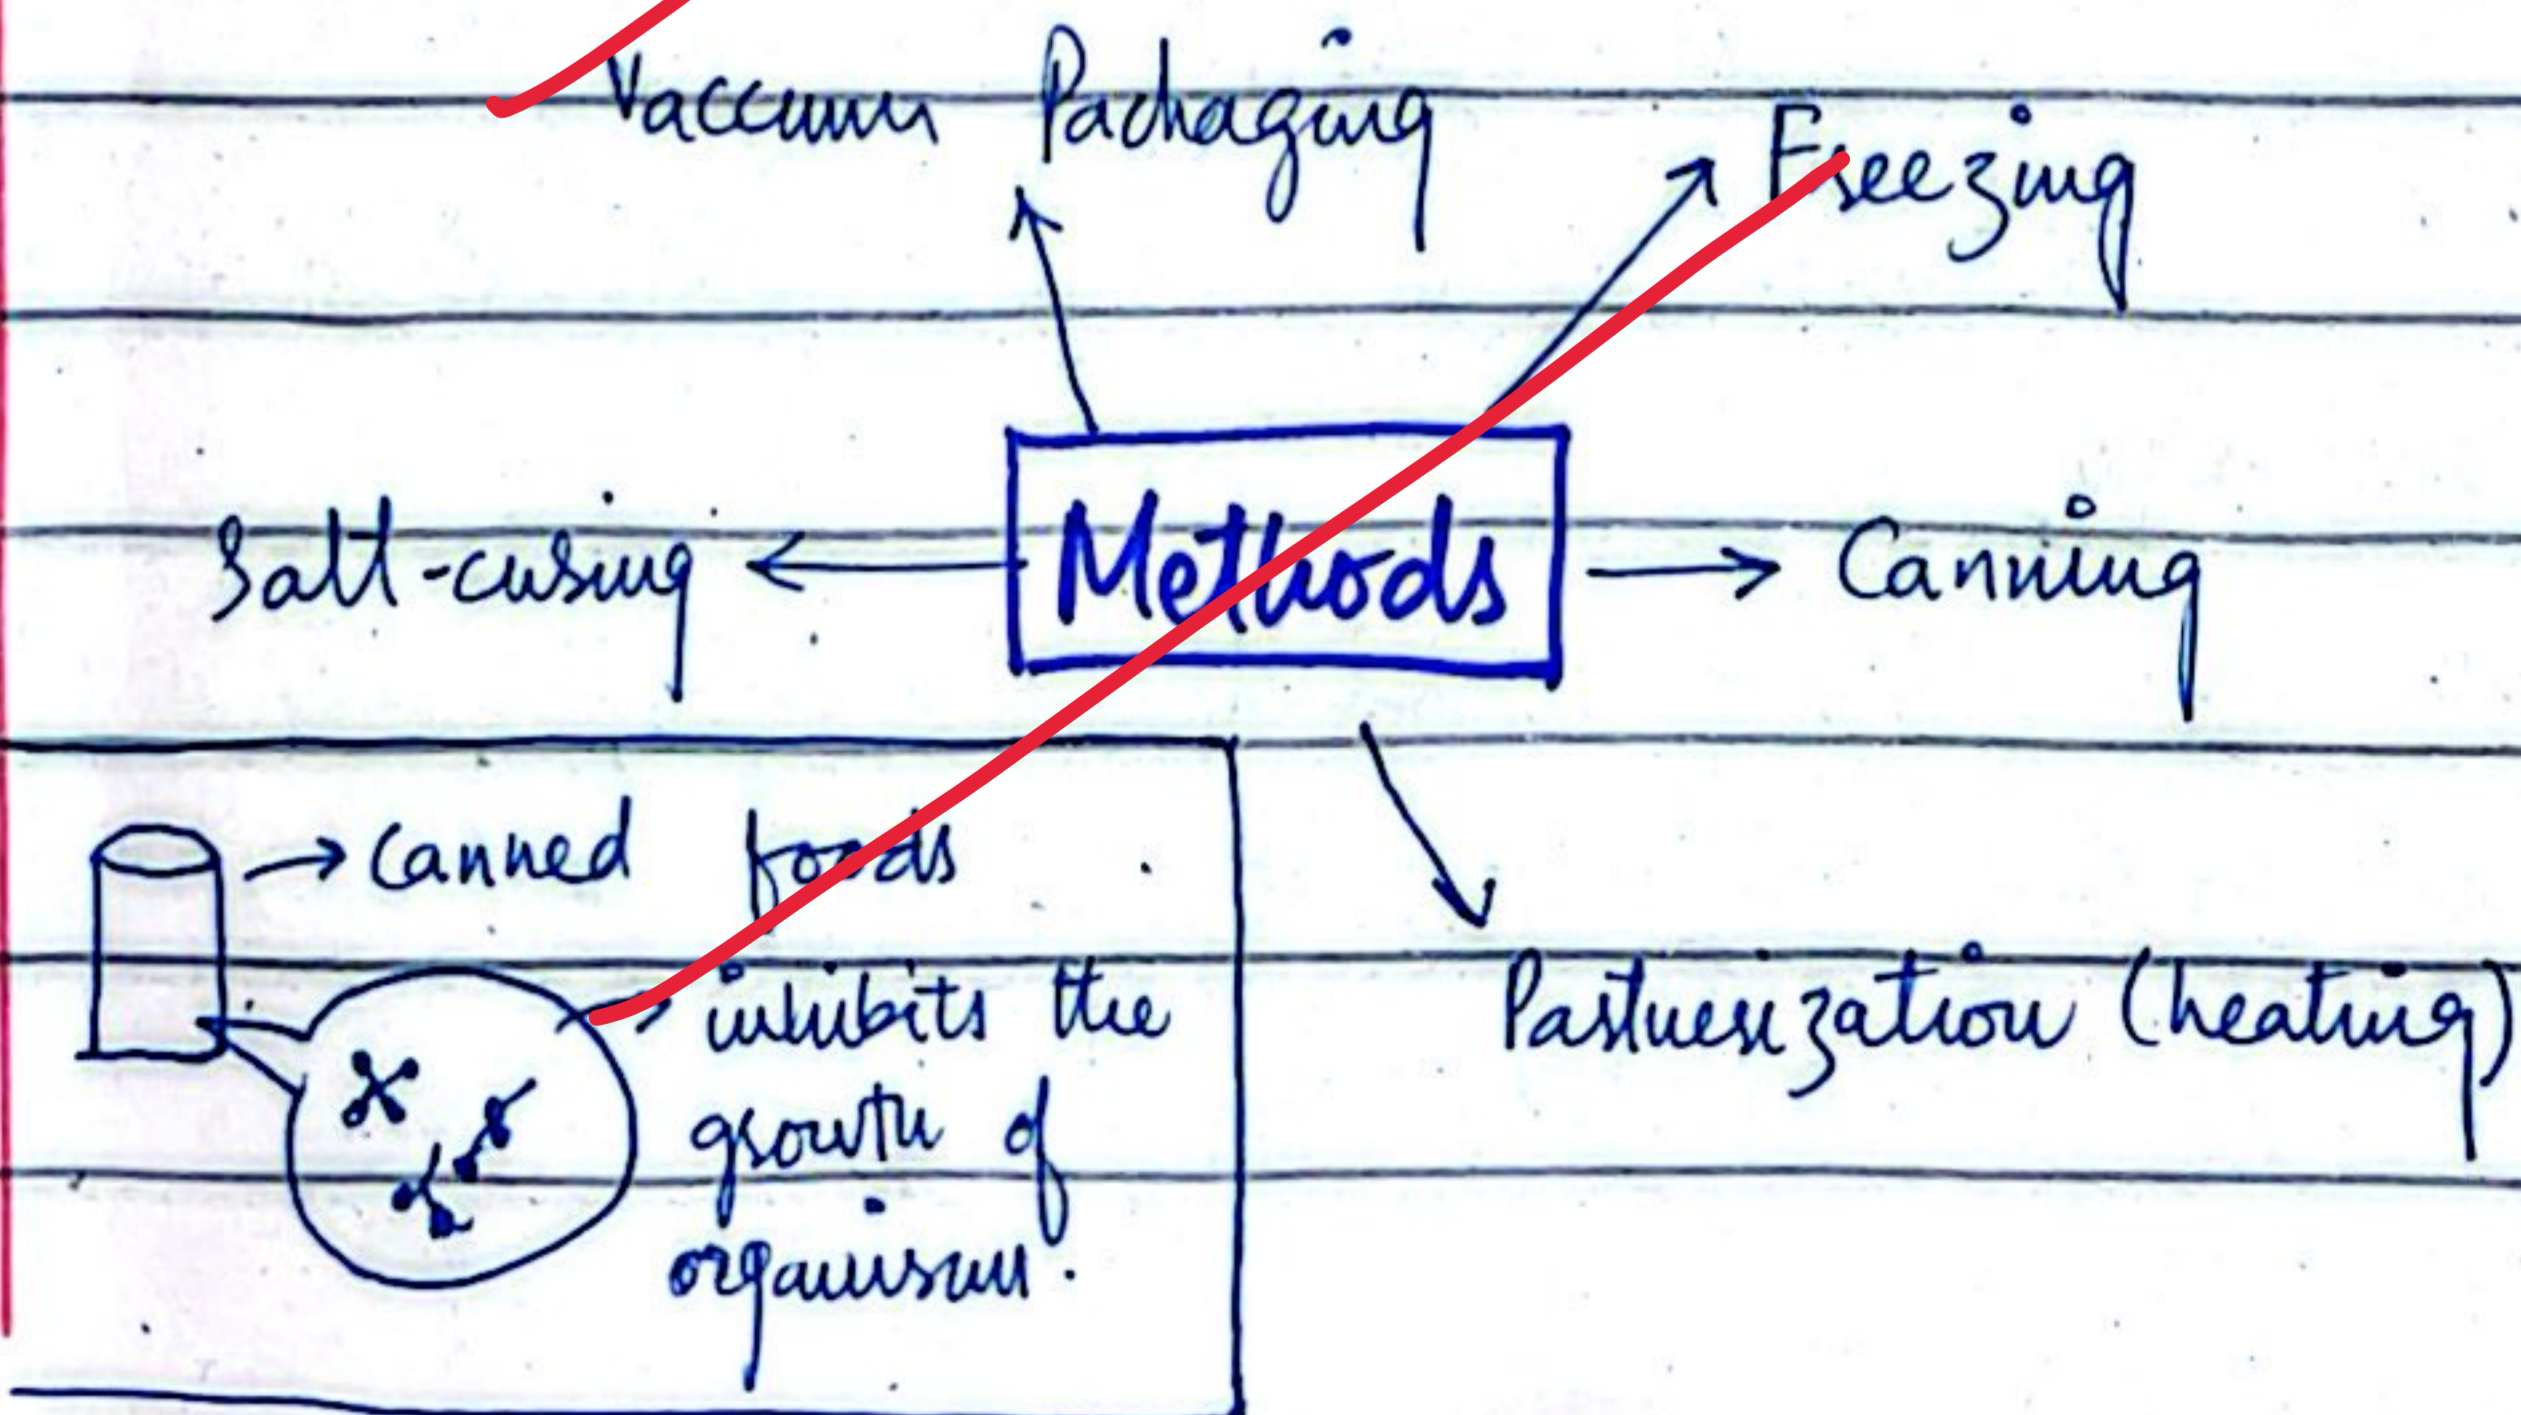 Vaccum Packaging
Freezing
Salt-curing
Methods
Canning
Canned foods
inhibits the
growth of
organism.
Pastuerization (heating)